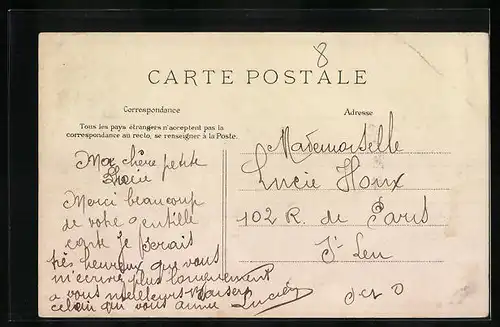 8
CARTE POSTALE
Correspondance
Adresse
Tous les pays étrangers n'acceptent pas la
correspondance au recto, se renseigner à la Poste.
Ma chère petite
Lucie
Merci beaucoup
de votre gentille
carte je serais
très heureux que vous
m'écrire plus longuement
a vous meilleurs Baisers
celui qui vous aime Lucien
Mademoiselle
Lucie Houx
102 R. de Paris
St Leu